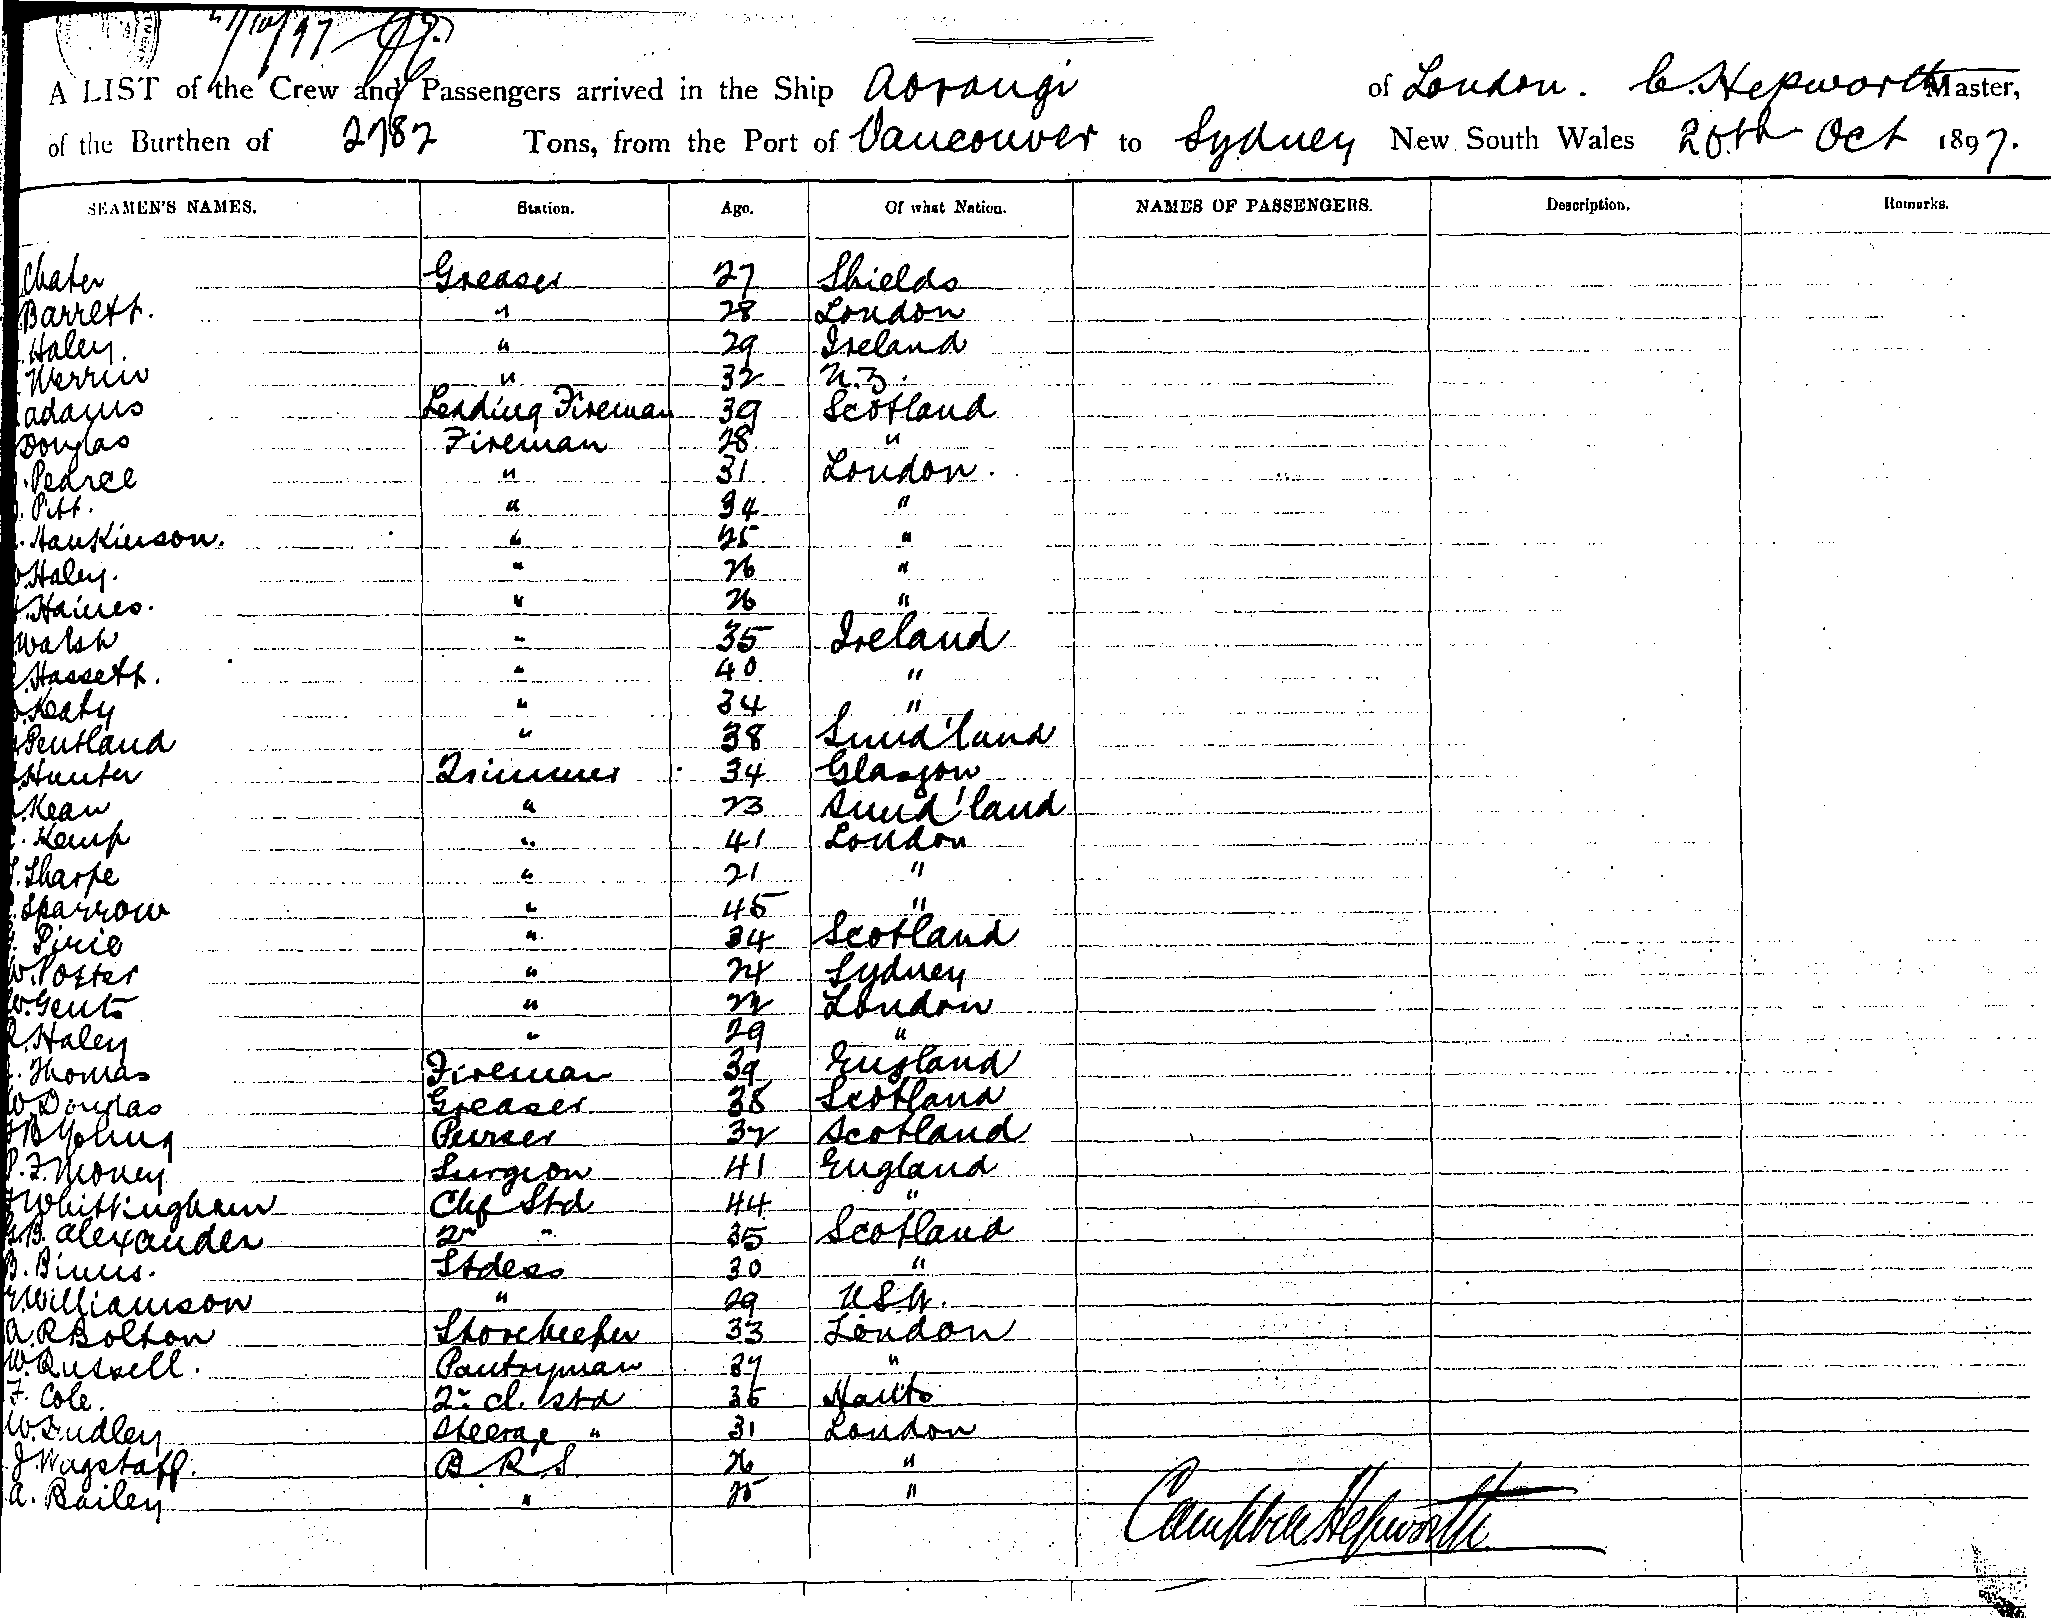 27/10/97
A LIST of the Crew and Passengers arrived in the Ship Aorangi of London. C. Hepworth Master,
of the Burthen of 2782 Tons, from the Port of Vancouver to Sydney New South Wales 20th Oct 1897.
SEAMEN'S NAMES. Station. Age. Of what Nation. NAMES OF PASSENGERS. Description. Remarks.
Chater Greaser 27 Shields
Barrett. " 28 London
Haley. " 29 Ireland
Werrin " 32 N.Z.
Adams Leading Fireman 39 Scotland
Douglas Fireman 28 "
Pearce " 31 London.
Pitt. " 34 "
Hankinson. " 25 "
Haley. " 26 "
Haines. " 26 "
Walsh " 35 Ireland
Hassett. " 40 "
Keaty " 34 "
Pentland " 38 Sund'land
Hunter Trimmer 34 Glasgow
Kean " 23 Sund'land
Kemp " 41 London
Sharpe " 21 "
Sparrow " 45 "
Pirie " 34 Scotland
W. Potter " 24 Sydney
W. Gent " 22 London
Haley " 29 "
Thomas Fireman 39 England
W. Douglas Greaser 38 Scotland
B Young Purser 32 Scotland
F. Money Surgeon 41 England
Whittingham Chf Std 44 "
B. Alexander 2nd " 35 Scotland
B. Binns. Stdess 30 "
Williamson " 29 NSW.
A. R Bolton Storekeeper 33 London
W. Russell. Pantryman 37 "
F. Cole. 2nd cl. Std 35 Hants
W. Dudley Steerage " 31 London
J Wagstaff. B R S 26 "
A. Bailey " 25 "
Campbell Hepworth